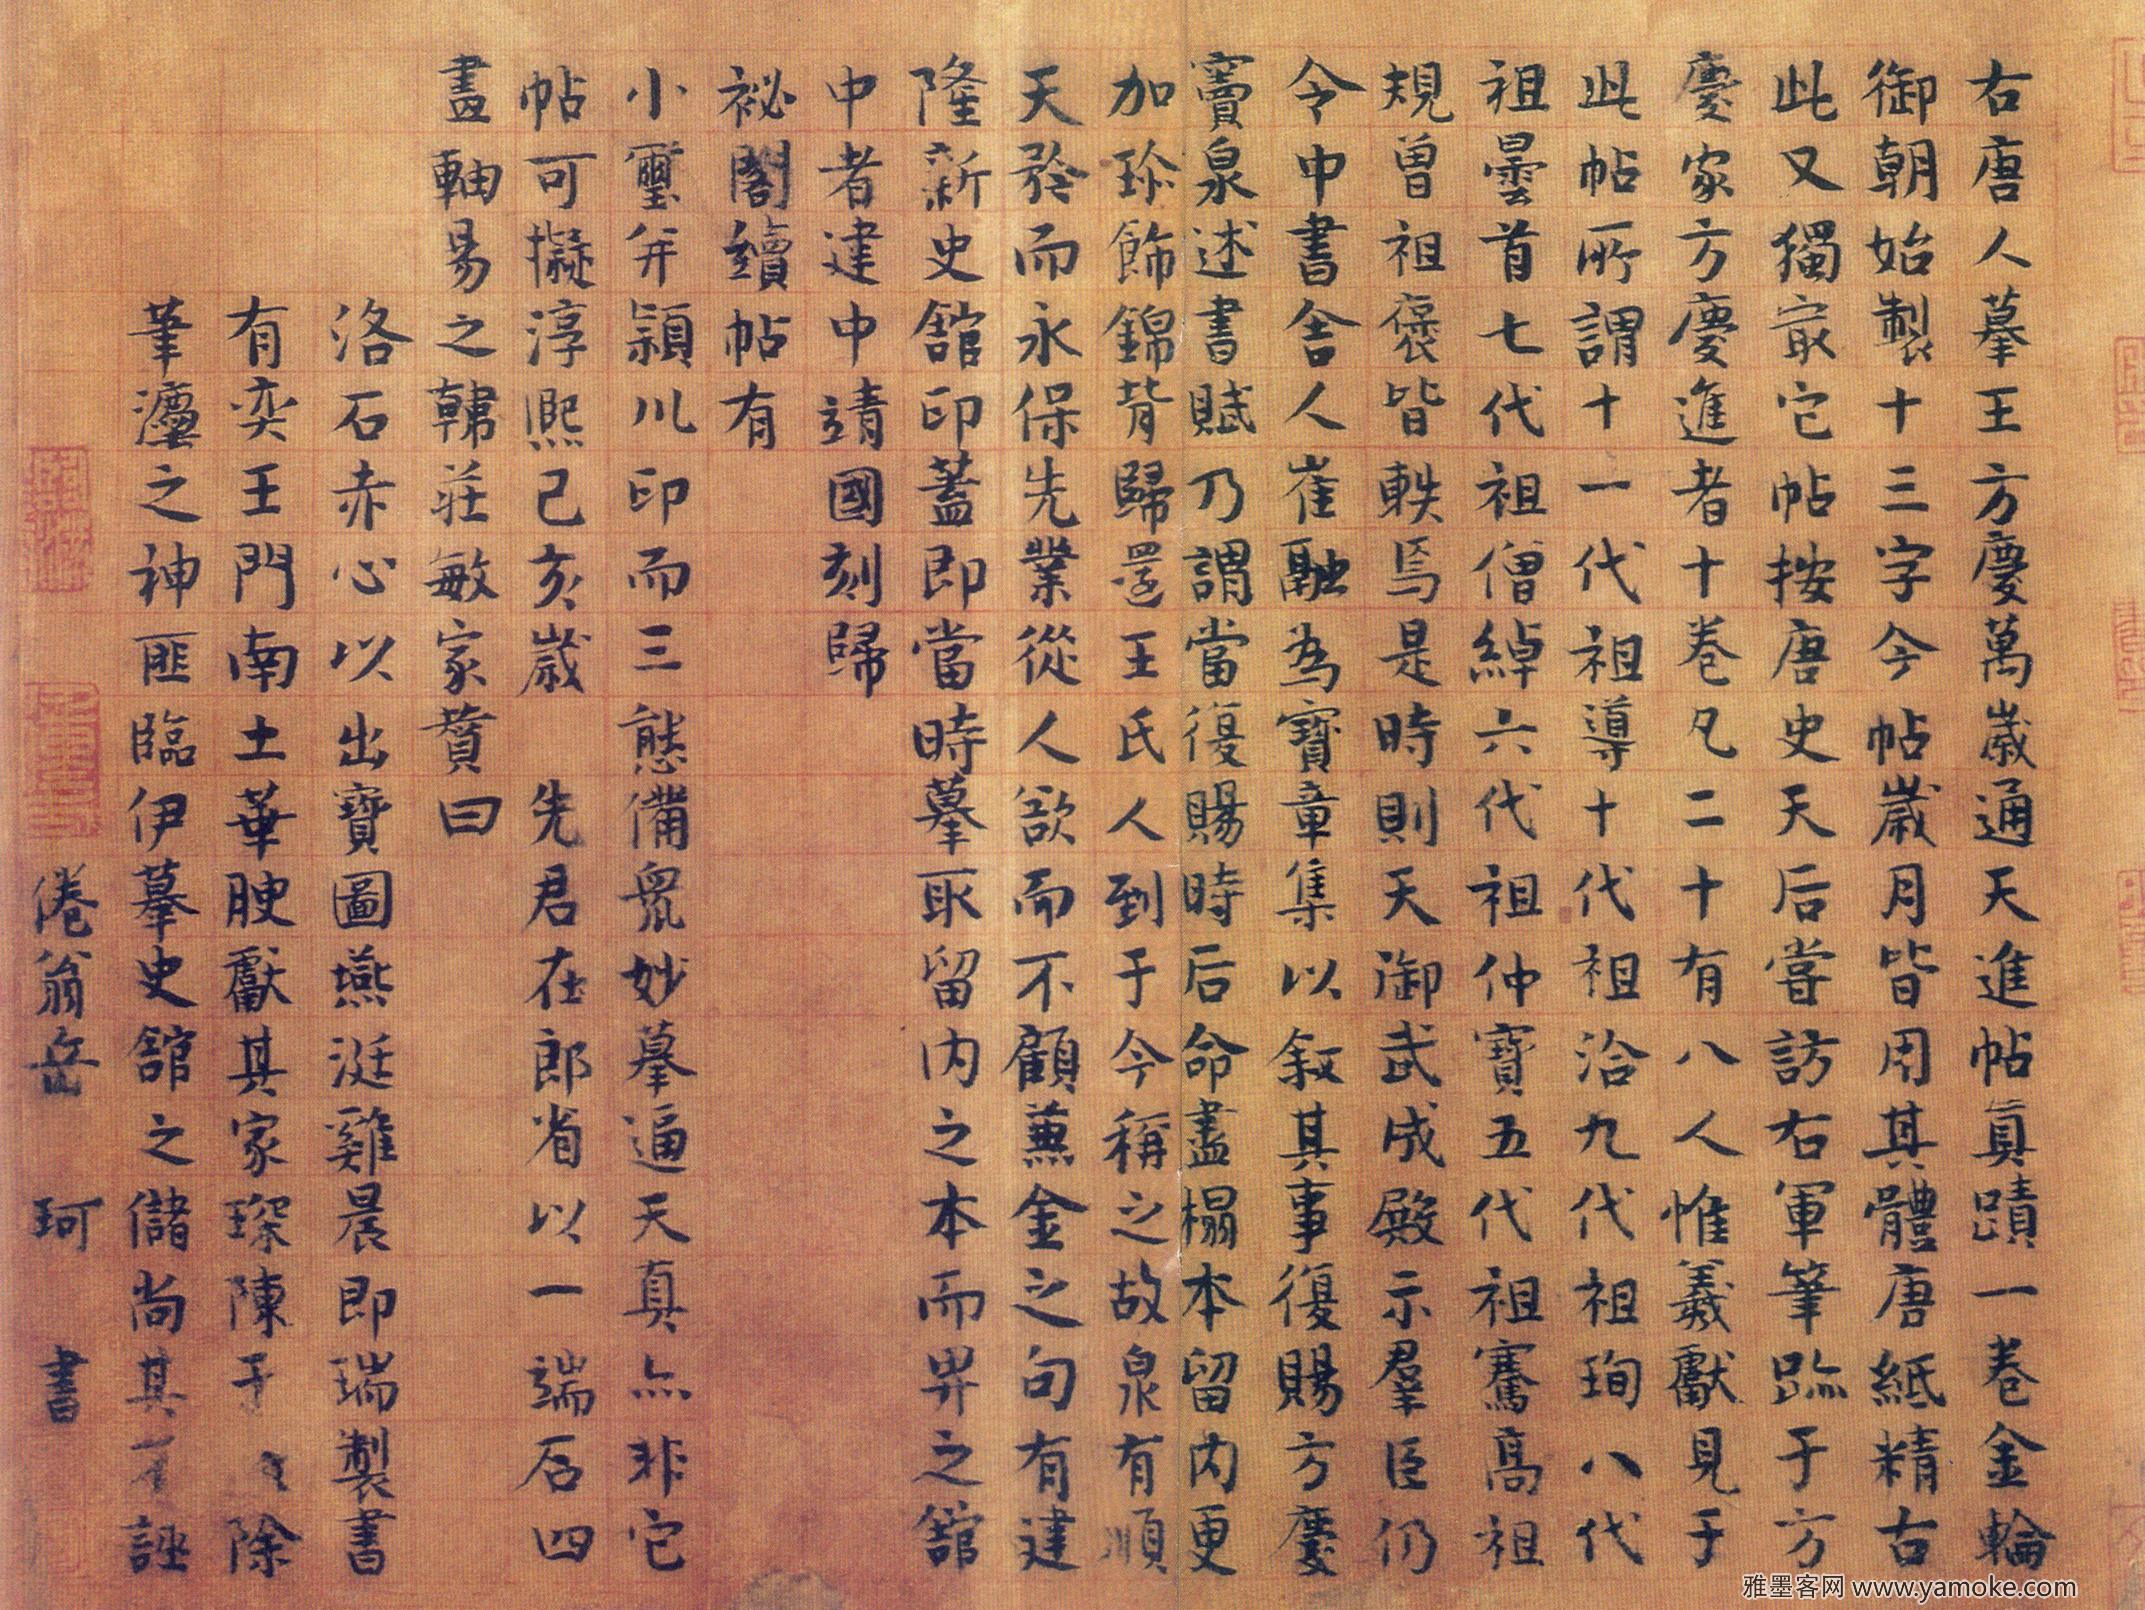 右唐人摹王方慶萬歲通天進帖真蹟一卷金輪
御朝始製十三字今帖歲月皆用其體唐紙精古
此又獨冣它帖按唐史天后嘗訪右軍筆跡于方
慶家方慶進者十卷凡二十有八人惟羲獻見于
此帖所謂十一代祖導十代祖洽九代祖珣八代
祖曇首七代祖僧綽六代祖仲寶五代祖騫高祖
規曾祖褒皆軼焉是時則天御武成殿示羣臣仍
令中書舍人崔融為寶章集以叙其事復賜方慶
竇泉述書賦乃謂當復賜時后命盡榻本留內更
加珎飾錦背歸還王氏人到于今稱之故泉有順
天矜而永保先業從人欲而不顧蕪金之句有建
隆新史舘印蓋即當時摹取留內之本而畀之舘
中者建中靖國刻歸
祕閣續帖有
小璽并潁川印而三態備衆妙摹逼天真亦非它
帖可擬淳熙己亥歲 先君在郎省以一端石四
畫軸易之韓莊敏家賛曰
洛石赤心以出寶圖燕涎雞晨即瑞製書
有奕王門南土華腴獻其家琛陳于 除
筆瀍之神匪臨伊摹史舘之儲尚其 誣
倦翁岳 珂 書
雅墨客网 www.yamoke.com